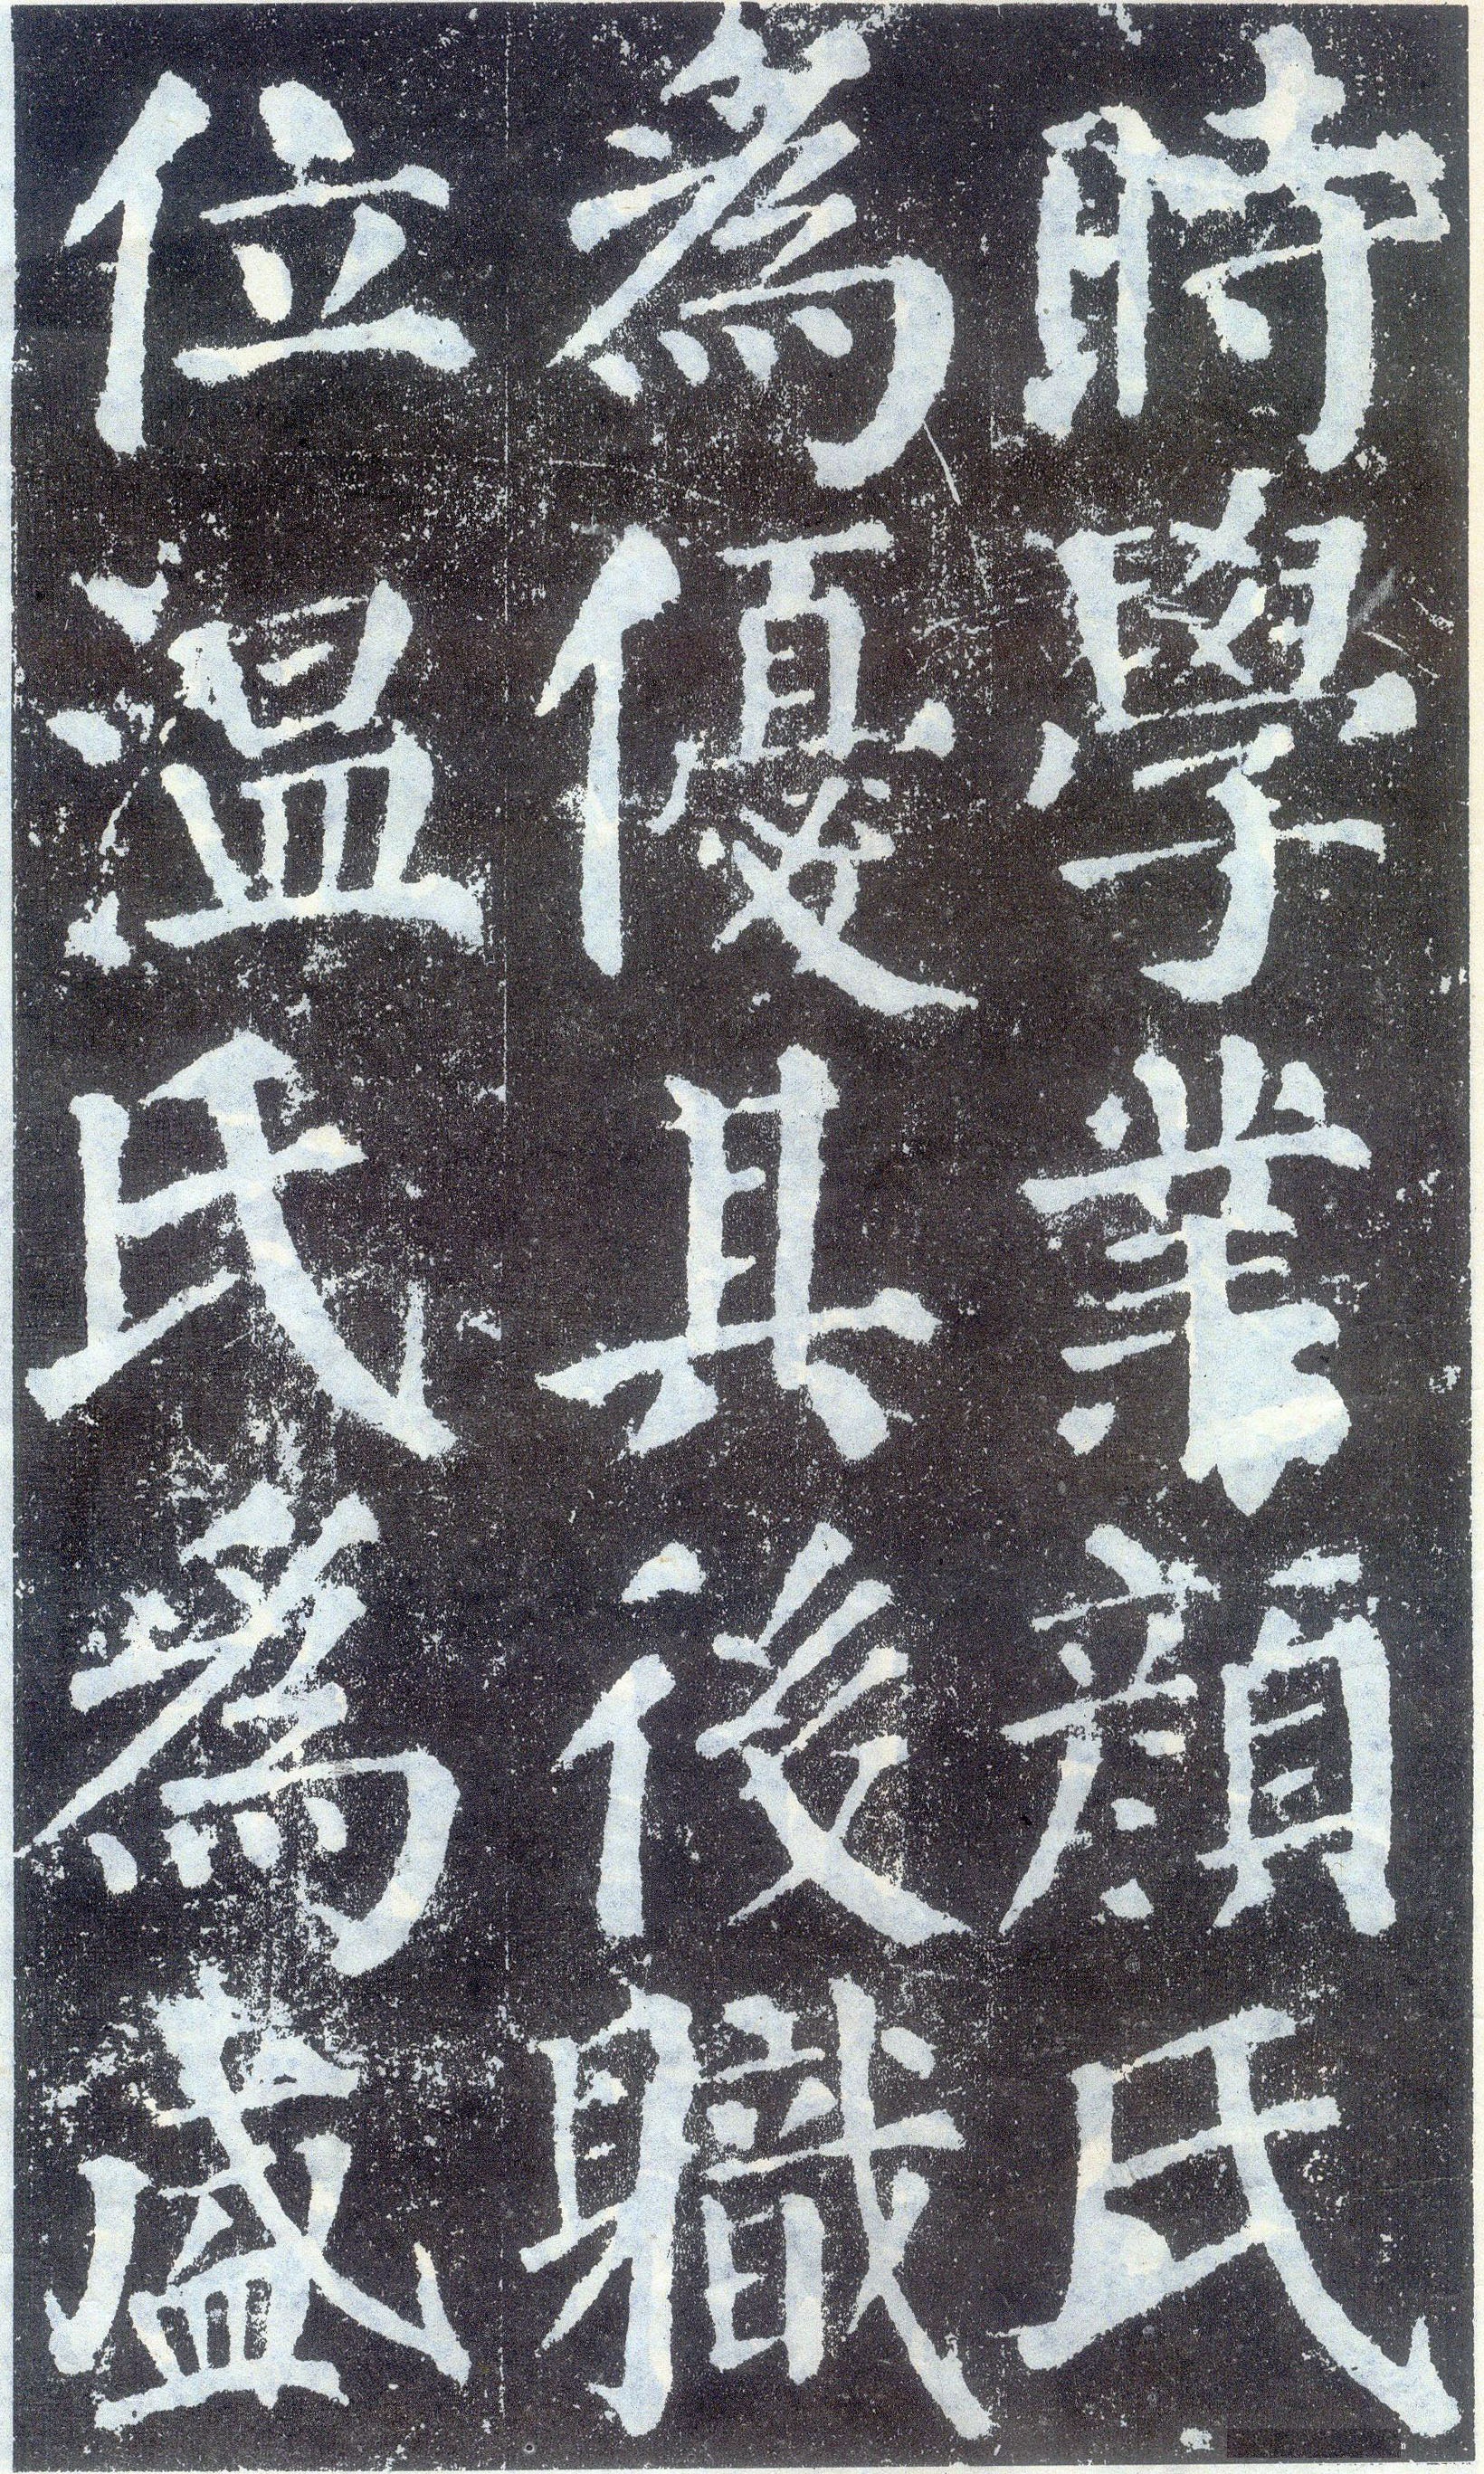 時學業顏氏
為優其後職
位溫氏為盛